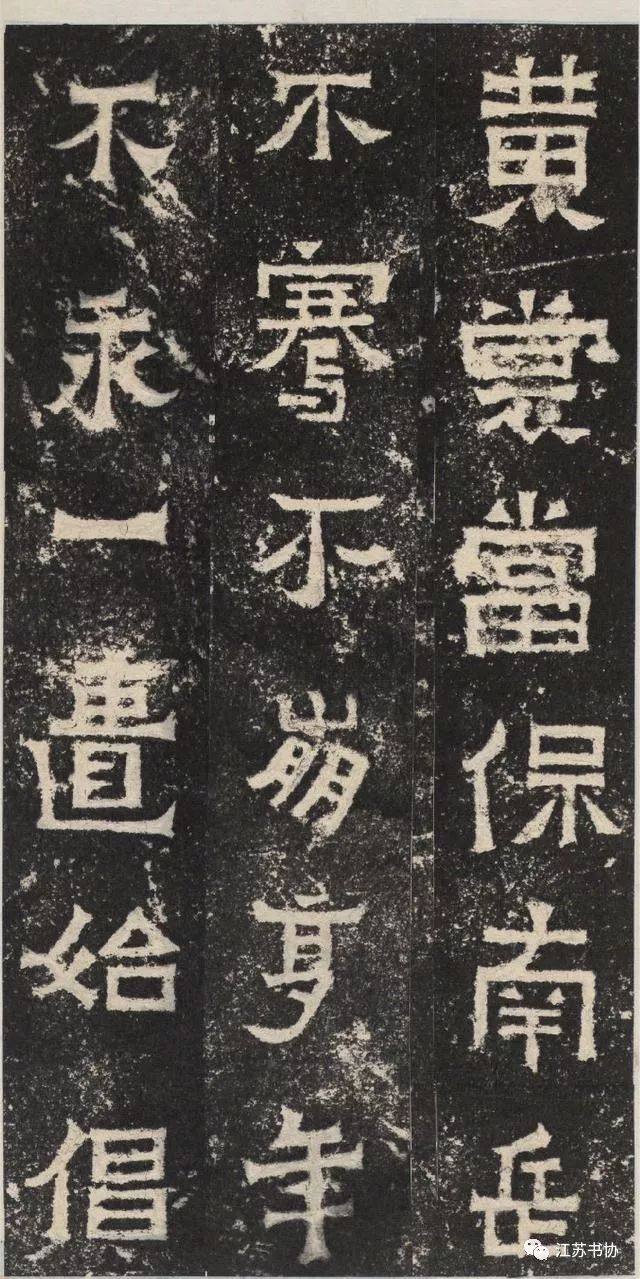 黄裳當保南岳
不騫不崩享年
不永一遭始倡
江苏书协